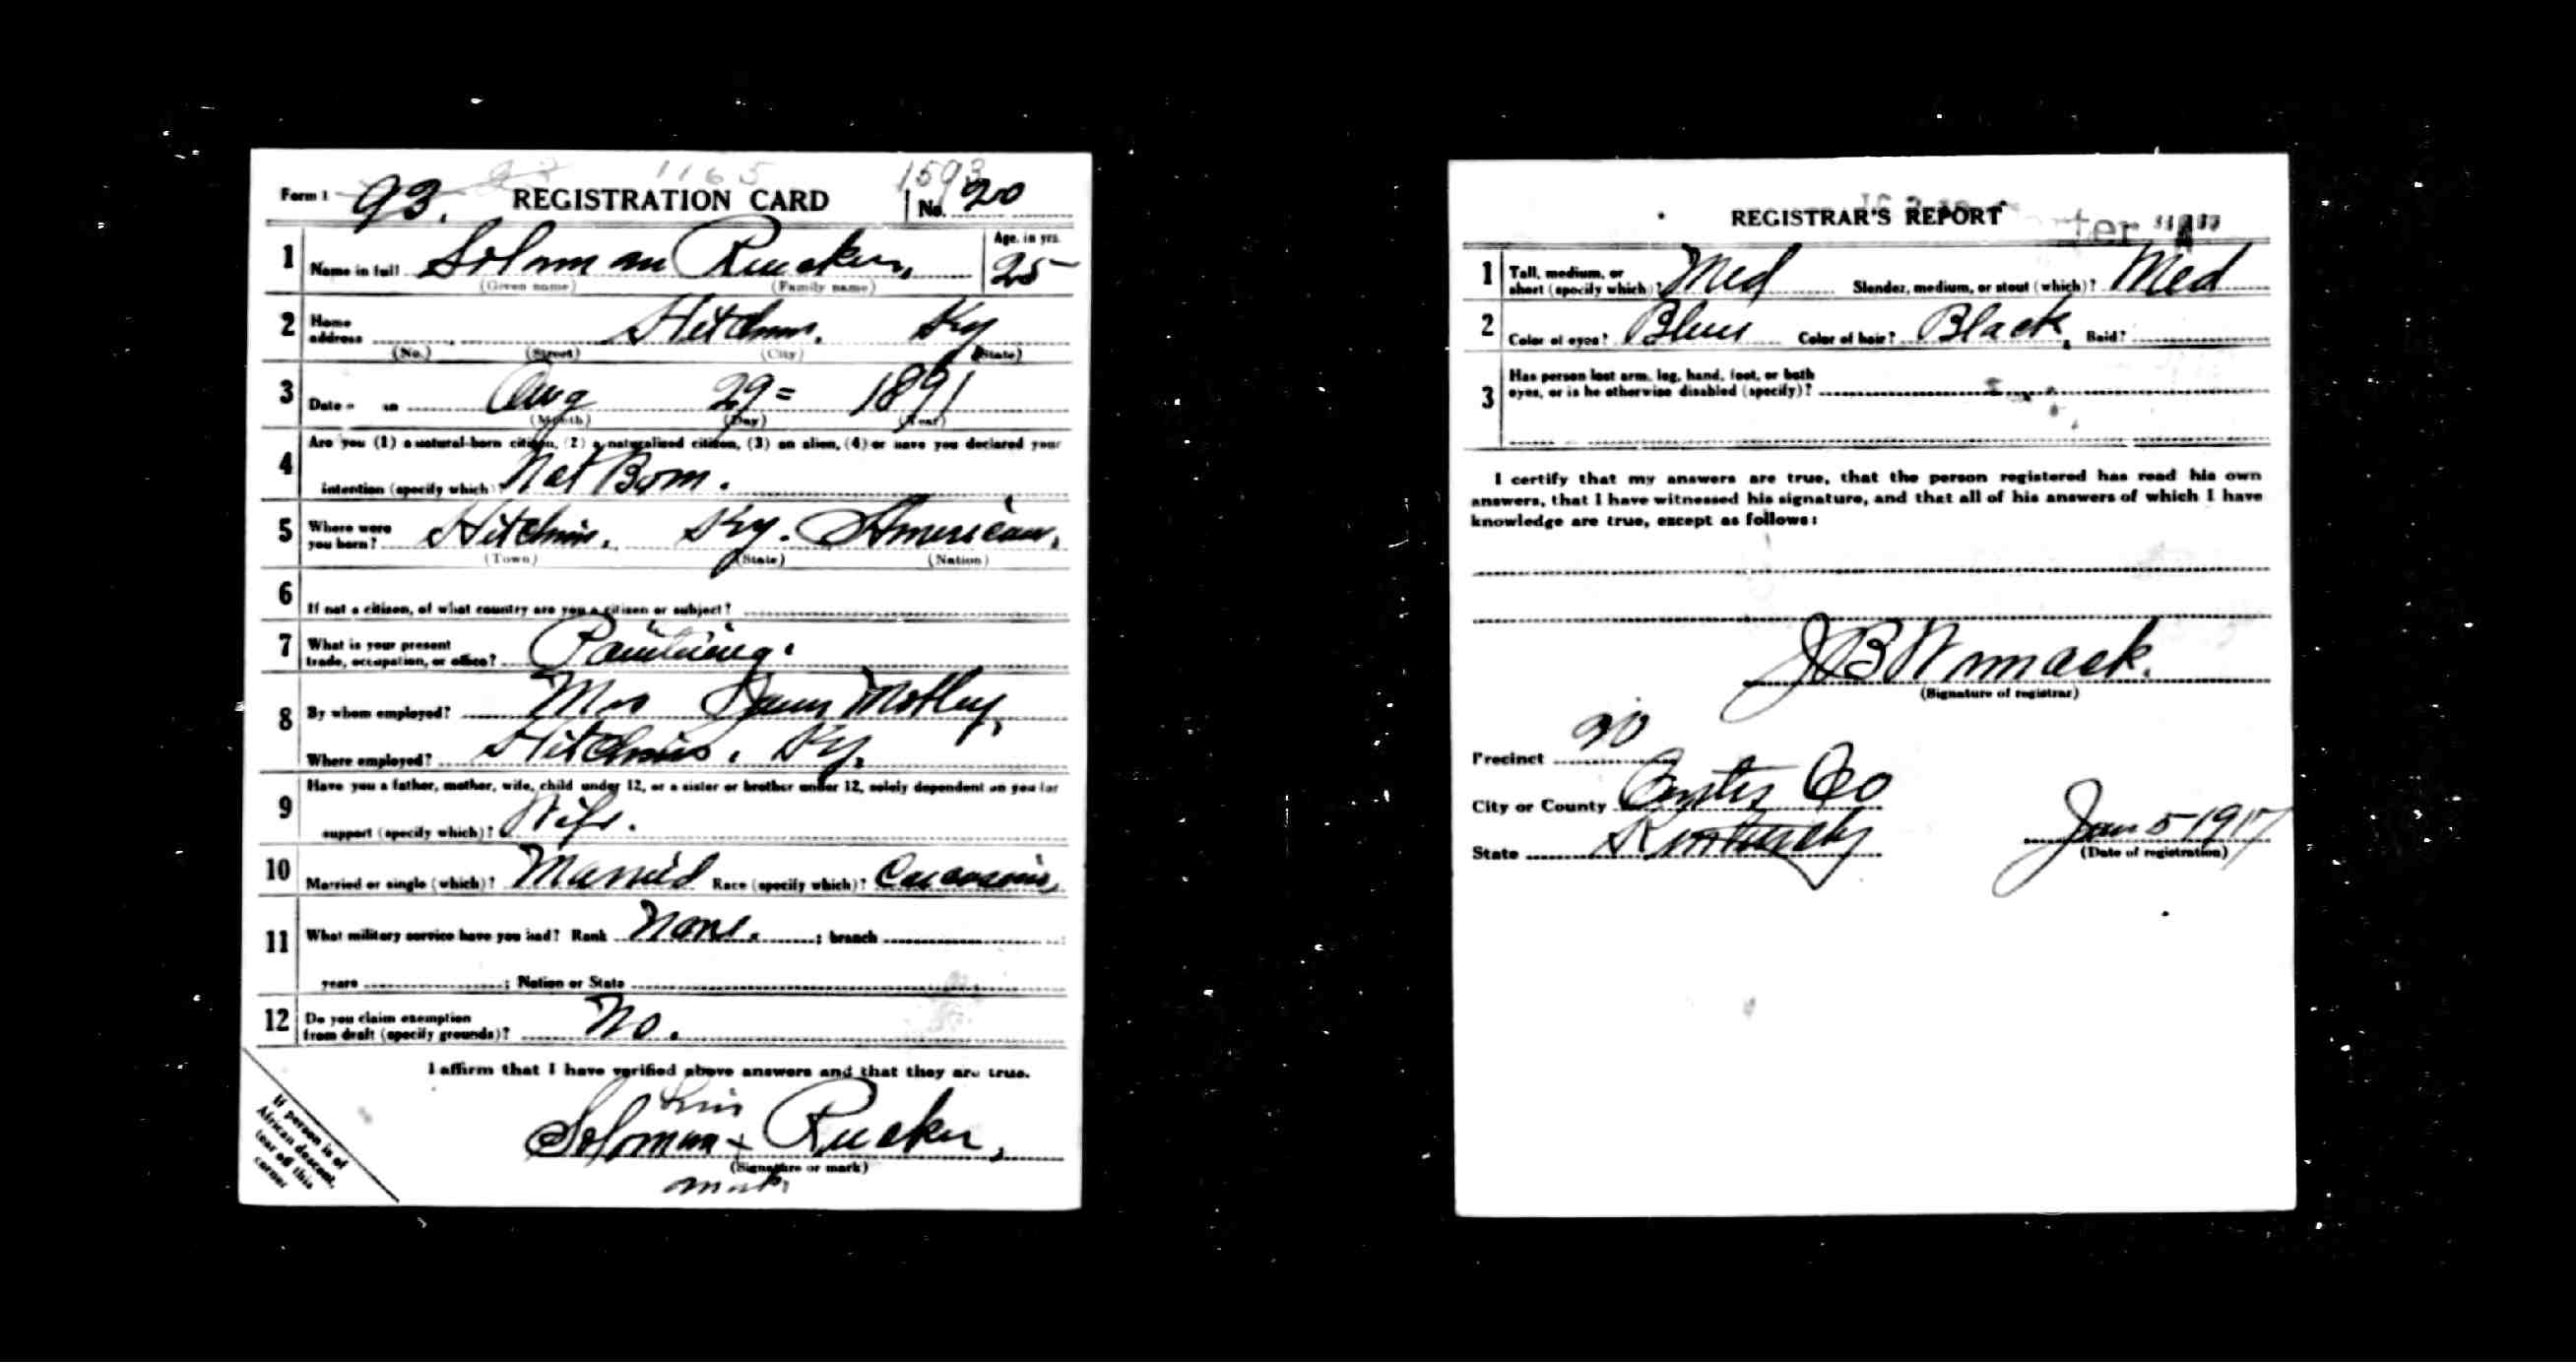 1165 1593
Form 1 93. REGISTRATION CARD No. 20
1 Name in full Solomon Rucker, Age, in yrs. 25
(Given name) (Family name)
2 Home address Hitchins, Ky
(No.) (Street) (City) (State)
3 Date Aug 29 = 1891
(Month) (Day) (Year)
4 Are you (1) a natural-born citizen, (2) a naturalized citizen, (3) an alien, (4) or have you declared your
intention (specify which)? Nat Born.
5 Where were you born? Hitchins, Ky. American,
(Town) (State) (Nation)
6 If not a citizen, of what country are you a citizen or subject?
7 What is your present trade, occupation, or office? Painting.
8 By whom employed? Mrs Motley,
Where employed? Hitchins, Ky,
9 Have you a father, mother, wife, child under 12, or a sister or brother under 12, solely dependent on you for
support (specify which)? Wife.
10 Married or single (which)? Married Race (specify which)?
11 What military service have you had? Rank None. ; branch
years ; Nation or State
12 Do you claim exemption from draft (specify grounds)? No.
I affirm that I have verified above answers and that they are true.
his
Solomon + Rucker,
(Signature or mark)
mark
If person is of
African descent,
tear off this
corner
REGISTRAR'S REPORT
1 Tall, medium, or short (specify which)? Med Slender, medium, or stout (which)? Med
2 Color of eyes? Blue Color of hair? Black, Bald?
3 Has person lost arm, leg, hand, foot, or both
eyes, or is he otherwise disabled (specify)?
I certify that my answers are true, that the person registered has read his own
answers, that I have witnessed his signature, and that all of his answers of which I have
knowledge are true, except as follows:
J B Womack.
(Signature of registrar)
Precinct 20
City or County Carter Co
State Kentucky Jun 5 1917
(Date of registration)